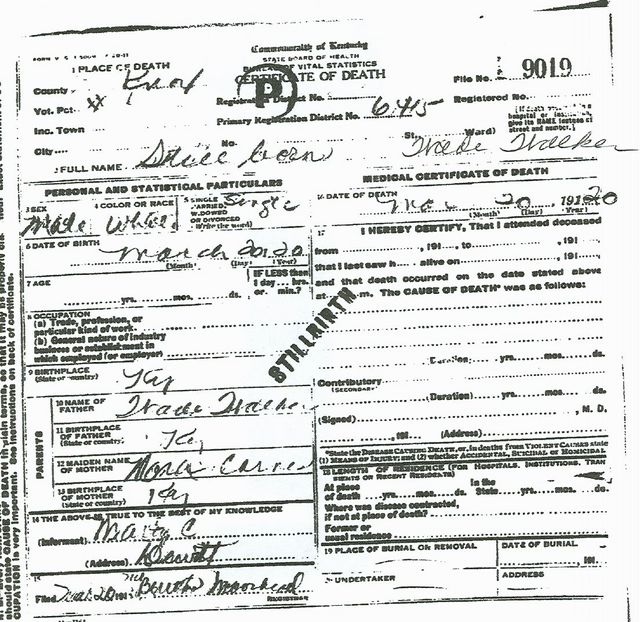 Commonwealth of Kentucky
STATE BOARD OF HEALTH
BUREAU OF VITAL STATISTICS
CERTIFICATE OF DEATH
1 PLACE OF DEATH
County Knox
File No. 9019
Registration District No.
Registered No.
Vot. Pct.
P
Primary Registration District No. 6415
Inc. Town
[If death
hospital or
give its NAME instead of
street and number.]
City No. St. Ward)
2 FULL NAME Still born Wade Walker
PERSONAL AND STATISTICAL PARTICULARS
MEDICAL CERTIFICATE OF DEATH
3 SEX Male
4 COLOR OR RACE White
5 SINGLE
MARRIED
WIDOWED
OR DIVORCED
(Write the word)
Single
16 DATE OF DEATH
Mar 20, 191 20
(Month) (Day) (Year)
6 DATE OF BIRTH
March 20 20
(Month) (Day) (Year)
17 I HEREBY CERTIFY, That I attended deceased
from , 191 , to , 191
that I last saw h alive on , 191
and that death occurred on the date stated above
at m. The CAUSE OF DEATH* was as follows:
7 AGE
yrs. mos. ds.
IF LESS than
1 day... hrs.
or... min.?
STILLBIRTH
8 OCCUPATION
(a) Trade, profession, or
particular kind of work
(b) General nature of industry
business or establishment in
which employed (or employer)
Duration yrs. mos. ds.
9 BIRTHPLACE
(State or country)
Ky
Contributory
(SECONDARY)
Duration yrs. mos. ds.
PARENTS
10 NAME OF
FATHER
Wade Walker
(Signed) , M. D.
, 191 (Address)
11 BIRTHPLACE
OF FATHER
(State or country)
Ky
*State the DISEASE CAUSING DEATH, or, in deaths from VIOLENT CAUSES state
(1) MEANS OF INJURY; and (2) whether ACCIDENTAL, SUICIDAL or HOMICIDAL
12 MAIDEN NAME
OF MOTHER
18 LENGTH OF RESIDENCE (FOR HOSPITALS, INSTITUTIONS, TRAN
SIENTS OR RECENT RESIDENTS)
13 BIRTHPLACE
OF MOTHER
(State or country)
Ky
At place
of death yrs. mos. ds.
In the
State yrs. mos. ds.
Where was disease contracted,
if not at place of death?
Former or
usual residence
14 THE ABOVE IS TRUE TO THE BEST OF MY KNOWLEDGE
(Informant)
(Address)
19 PLACE OF BURIAL OR REMOVAL
DATE OF BURIAL
, 191
15
Filed 191 Moorhead
REGISTRAR
20 UNDERTAKER
ADDRESS
should state CAUSE OF DEATH in plain terms, so that it may be properly
CUPATION is very important. See instructions on back of certificate.